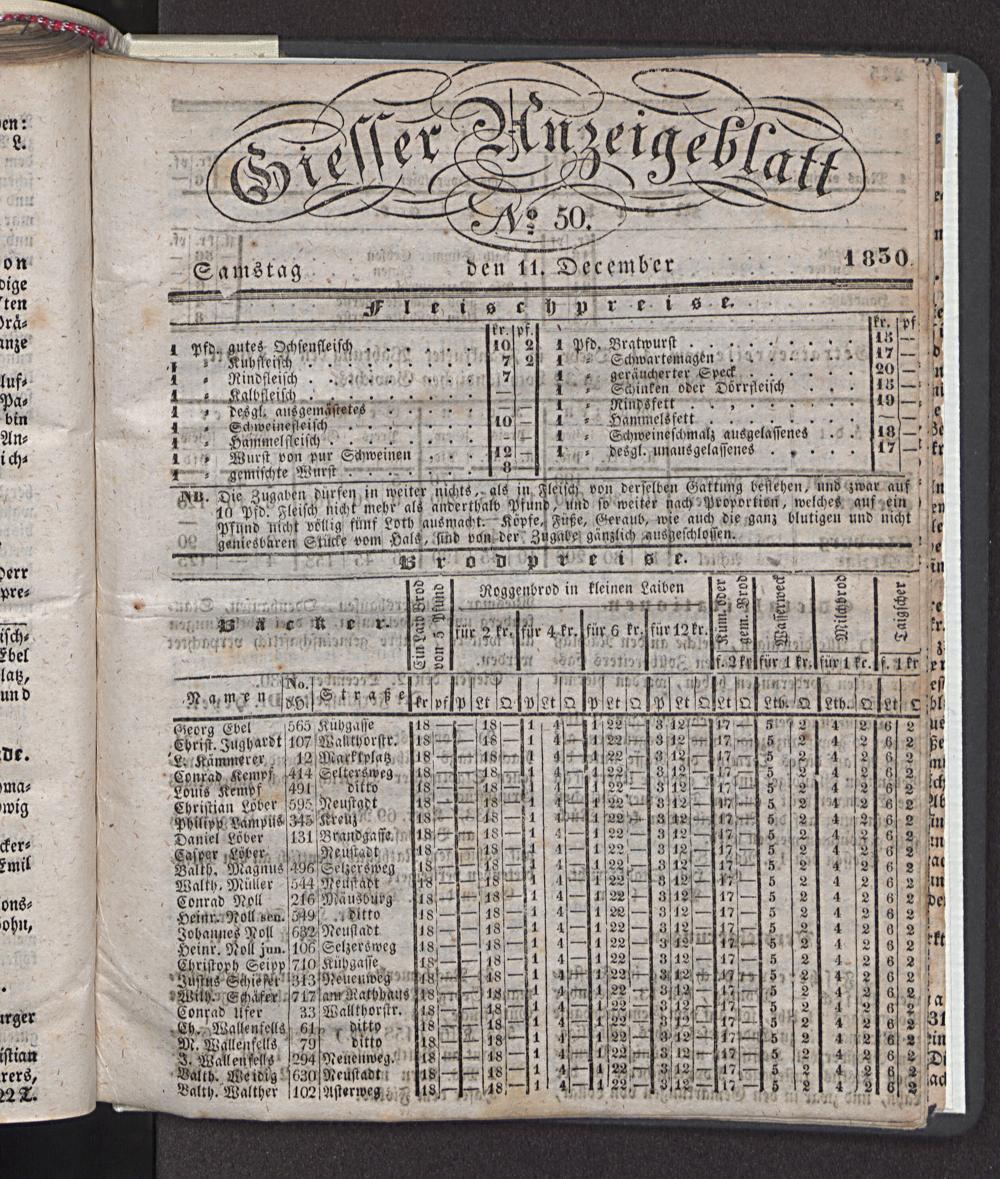 Giesser Anzeigeblatt
No 50.
Samstag den 11. December 1830
Fleischpreise.
kr. pf.
1 Pfd. gutes Ochsenfleisch . . . 10 2
1 " Kuhfleisch . . . 7 2
1 " Rindfleisch . . . 7
1 " Kalbfleisch . . . —
1 " desgl. ausgemästetes
1 " Schweinefleisch . . . 10 —
1 " Hammelfleisch . . . —
1 " Wurst von pur Schweinen . . . 12 —
1 " gemischte Wurst . . . 8
kr. pf
1 Pfd. Bratwurst . . . 13 —
1 " Schwartemagen . . . 17 —
1 " geräucherter Speck . . . 20 —
1 " Schinken oder Dörrfleisch . . . 13 —
1 " Rindsfett . . . 19 —
1 " Hammelsfett . . . —
1 " Schweineschmalz ausgelassenes . . . 18 —
1 " desgl. unausgelassenes . . . 17 —
NB. Die Zugaben dürfen in weiter nichts, als in Fleisch von derselben Gattung bestehen, und zwar auf
10 Pfd. Fleisch nicht mehr als anderthalb Pfund, und so weiter nach Proportion, welches auf ein
Pfund nicht völlig fünf Loth ausmacht. Köpfe, Füße, Geraub, wie auch die ganz blutigen und nicht
geniesbaren Stücke vom Hals, sind von der Zugabe gänzlich ausgeschlossen.
Brodpreise.
Bäcker.
Ein Laib Brod von 5 Pfund
Roggenbrod in kleinen Laiben
für 2 kr. für 4 kr. für 6 kr. für 12 kr.
Küm. oder gem. Brod f. 2 kr
Wasserweck für 1 kr.
Milchbrod für 1 kr.
Taigscher f. 1 kr
Namen No. Straße kr pf P Lt Q P Lt Q P Lt Q P Lt Q Lt Q Lth. Q Lth. Q Lt Q
Georg Ebel 565 Kühgasse 18 — — 18 — 1 4 — 1 22 — 3 12 — 17 — 5 2 4 2 6 2
Christ. Jughardt 107 Wallthorstr. 18 — — 18 — 1 4 — 1 22 — 3 12 — 17 — 5 2 4 2 6 2
L. Kämmerer 12 Marktplatz 18 — — 18 — 1 4 — 1 22 — 3 12 — 17 — 5 2 4 2 6 2
Conrad Kempf 414 Seltersweg 18 — — 18 — 1 4 — 1 22 — 3 12 — 17 — 5 2 4 2 6 2
Louis Kempf 491 ditto 18 — — 18 — 1 4 — 1 22 — 3 12 — 17 — 5 2 4 2 6 2
Christian Löber 595 Neustadt 18 — — 18 — 1 4 — 1 22 — 3 12 — 17 — 5 2 4 2 6 2
Philipp Lampus 345 Kreuz 18 — — 18 — 1 4 — 1 22 — 3 12 — 17 — 5 2 4 2 6 2
Daniel Löber 131 Brandgasse. 18 — — 18 — 1 4 — 1 22 — 3 12 — 17 — 5 2 4 2 6 2
Casper Löber Neustadt 18 — — 18 — 1 4 — 1 22 — 3 12 — 17 — 5 2 4 2 6 2
Balth. Magnus 496 Selzersweg 18 — — 18 — 1 4 — 1 22 — 3 12 — 17 — 5 2 4 2 6 2
Walth. Müller 544 Neustadt 18 — — 18 — 1 4 — 1 22 — 3 12 — 17 — 5 2 4 2 6 2
Conrad Noll 216 Mäusburg 18 — — 18 — 1 4 — 1 22 — 3 12 — 17 — 5 2 4 2 6 2
Heinr. Noll sen. 549 ditto 18 — — 18 — 1 4 — 1 22 — 3 12 — 17 — 5 2 4 2 6 2
Johannes Noll 632 Neustadt 18 — — 18 — 1 4 — 1 22 — 3 12 — 17 — 5 2 4 2 6 2
Heinr. Noll jun. 106 Selzersweg 18 — — 18 — 1 4 — 1 22 — 3 12 — 17 — 5 2 4 2 6 2
Christoph Seipp 710 Kühgasse 18 — — 18 — 1 4 — 1 22 — 3 12 — 17 — 5 2 4 2 6 2
Justus Schiefer 313 Neuenweg 18 — — 18 — 1 4 — 1 22 — 3 12 — 17 — 5 2 4 2 6 2
Wilh. Schäfer 717 am Rathhaus 18 — — 18 — 1 4 — 1 22 — 3 12 — 17 — 5 2 4 2 6 2
Conrad Ufer 33 Wallthorstr. 18 — — 18 — 1 4 — 1 22 — 3 12 — 17 — 5 2 4 2 6 2
Ch. Wallenfells 61 ditto 18 — — 18 — 1 4 — 1 22 — 3 12 — 17 — 5 2 4 2 6 2
M. Wallenfells 79 ditto 18 — — 18 — 1 4 — 1 22 — 3 12 — 17 — 5 2 4 2 6 2
J. Wallenfells 294 Neuenweg. 18 — — 18 — 1 4 — 1 22 — 3 12 — 17 — 5 2 4 2 6 2
Balth. Weidig 630 Neustadt 18 — — 18 — 1 4 — 1 22 — 3 12 — 17 — 5 2 4 2 6 2
Balth. Walther 102 Asterweg 18 — — 18 — 1 4 — 1 22 — 3 12 — 17 — 5 2 4 2 6 2